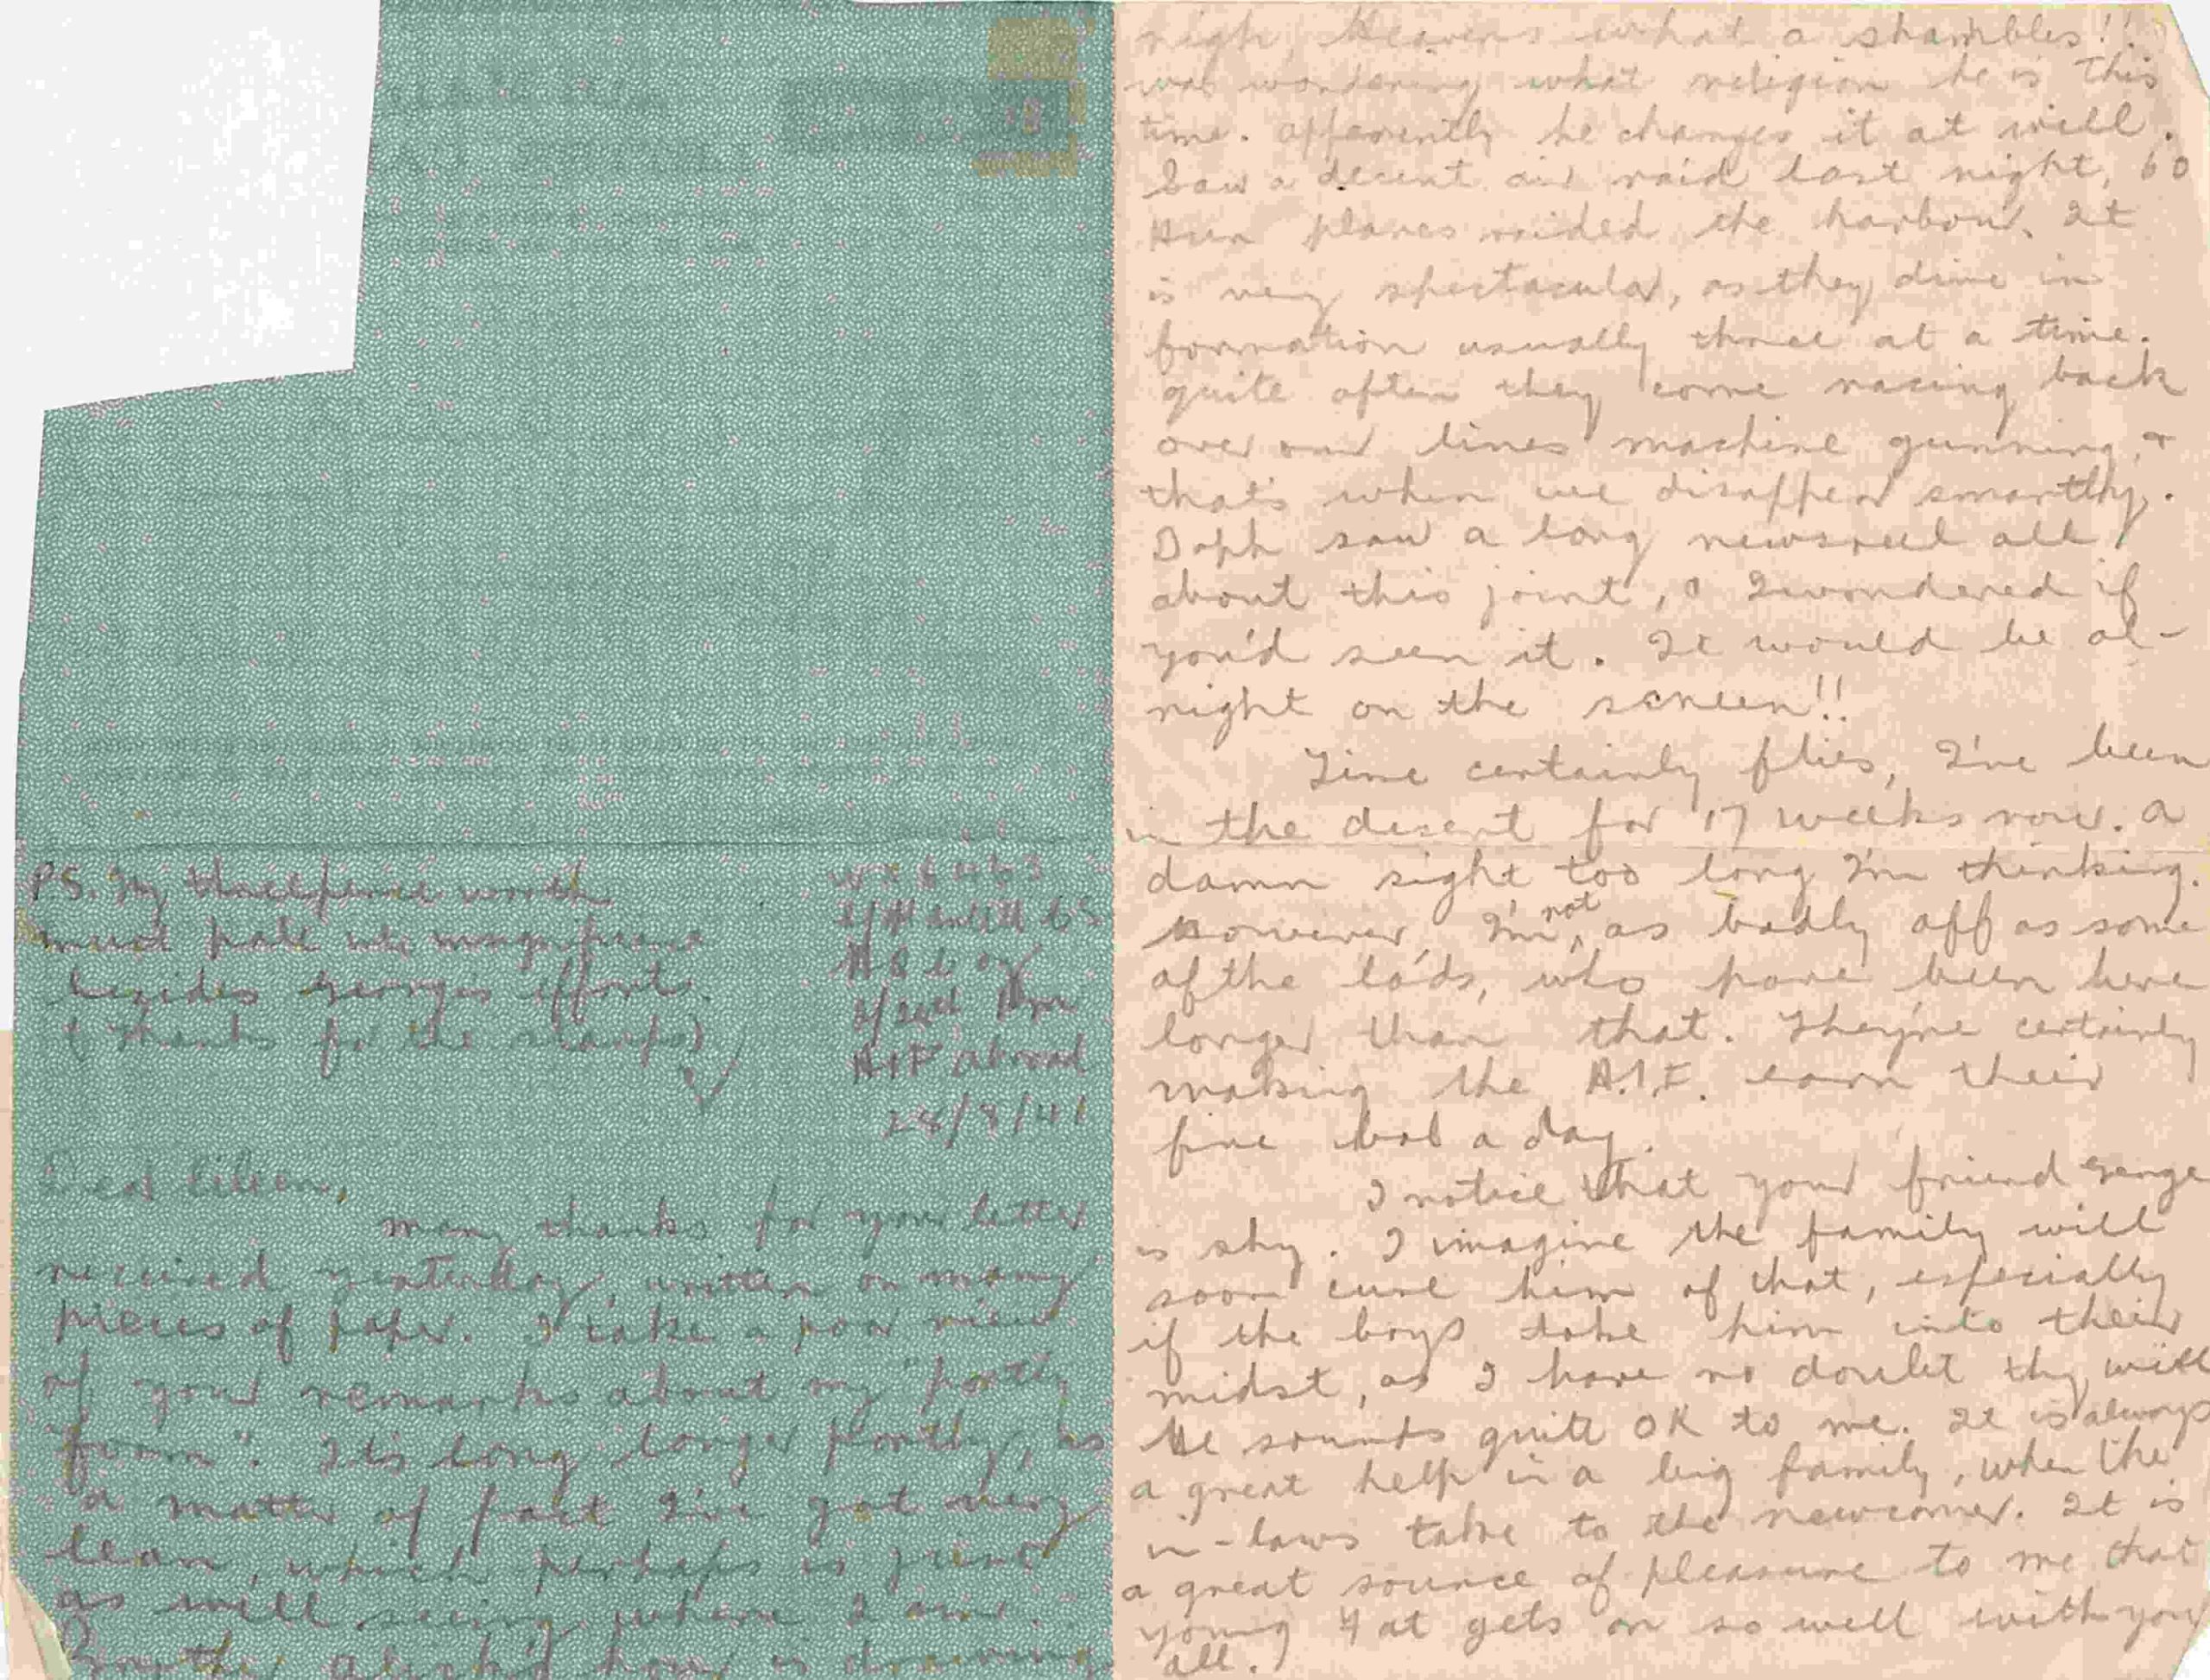 P.S. My threepenie worth
must pale into
besides George's efforts.
(thanks for the stamps)
A.I.F abroad
28/8/41
Dear Eileen,
many thanks for your letter
received yesterday, written on many
pieces of paper. I take a poor view
of your remarks about my "portly
"form". Its long longer portly, as
a matter of fact I've got very
lean, which perhaps is just
as well seeing where I am.
how is drawing
nigh, Heavens what a shambles!!
was wondering what religion he is this
time. Apparently he changes it at will.
Saw a decent air raid last night, 60
Hun planes raided the harbour. It
is very spectacular, as they dive in
formation usually three at a time.
quite often they come racing back
over our lines machine gunning, &
that's when we disappear smartly.
Daph saw a long newsreel all
about this joint, & I wondered if
you'd seen it. It would be al-
right on the screen!!
Time certainly flies, I've been
in the desert for 17 weeks now. A
damn sight too long I'm thinking.
However, I'm not as badly off as some
of the lads, who have been here
longer than that. They're certainly
making the A.I.F. earn their
five bob a day.
I notice that your friend George
is shy. I imagine the family will
soon cure him of that, especially
if the boys take him into their
midst, as I have no doubt thy will
He sounds quite OK to me. It is always
a great help in a big family, when the
in-laws take to the newcomer. It is
a great source of pleasure to me that
young Pat gets on so well with you
all.